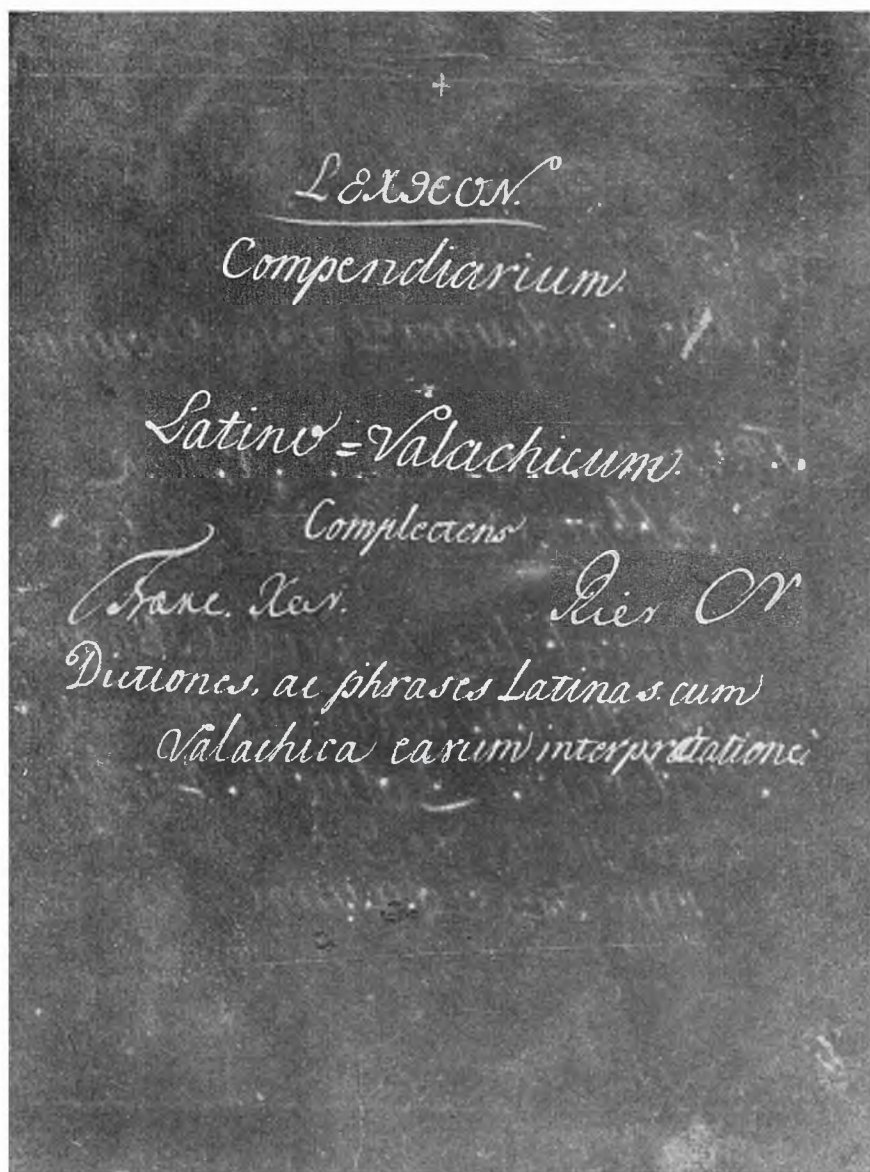 +
LEXICON.
Compendiarium.
Latino=Valachicum.
Complectens
Franc. Xav.
Dictiones, ac phrases Latinas cum
Valachica earum interpretatione